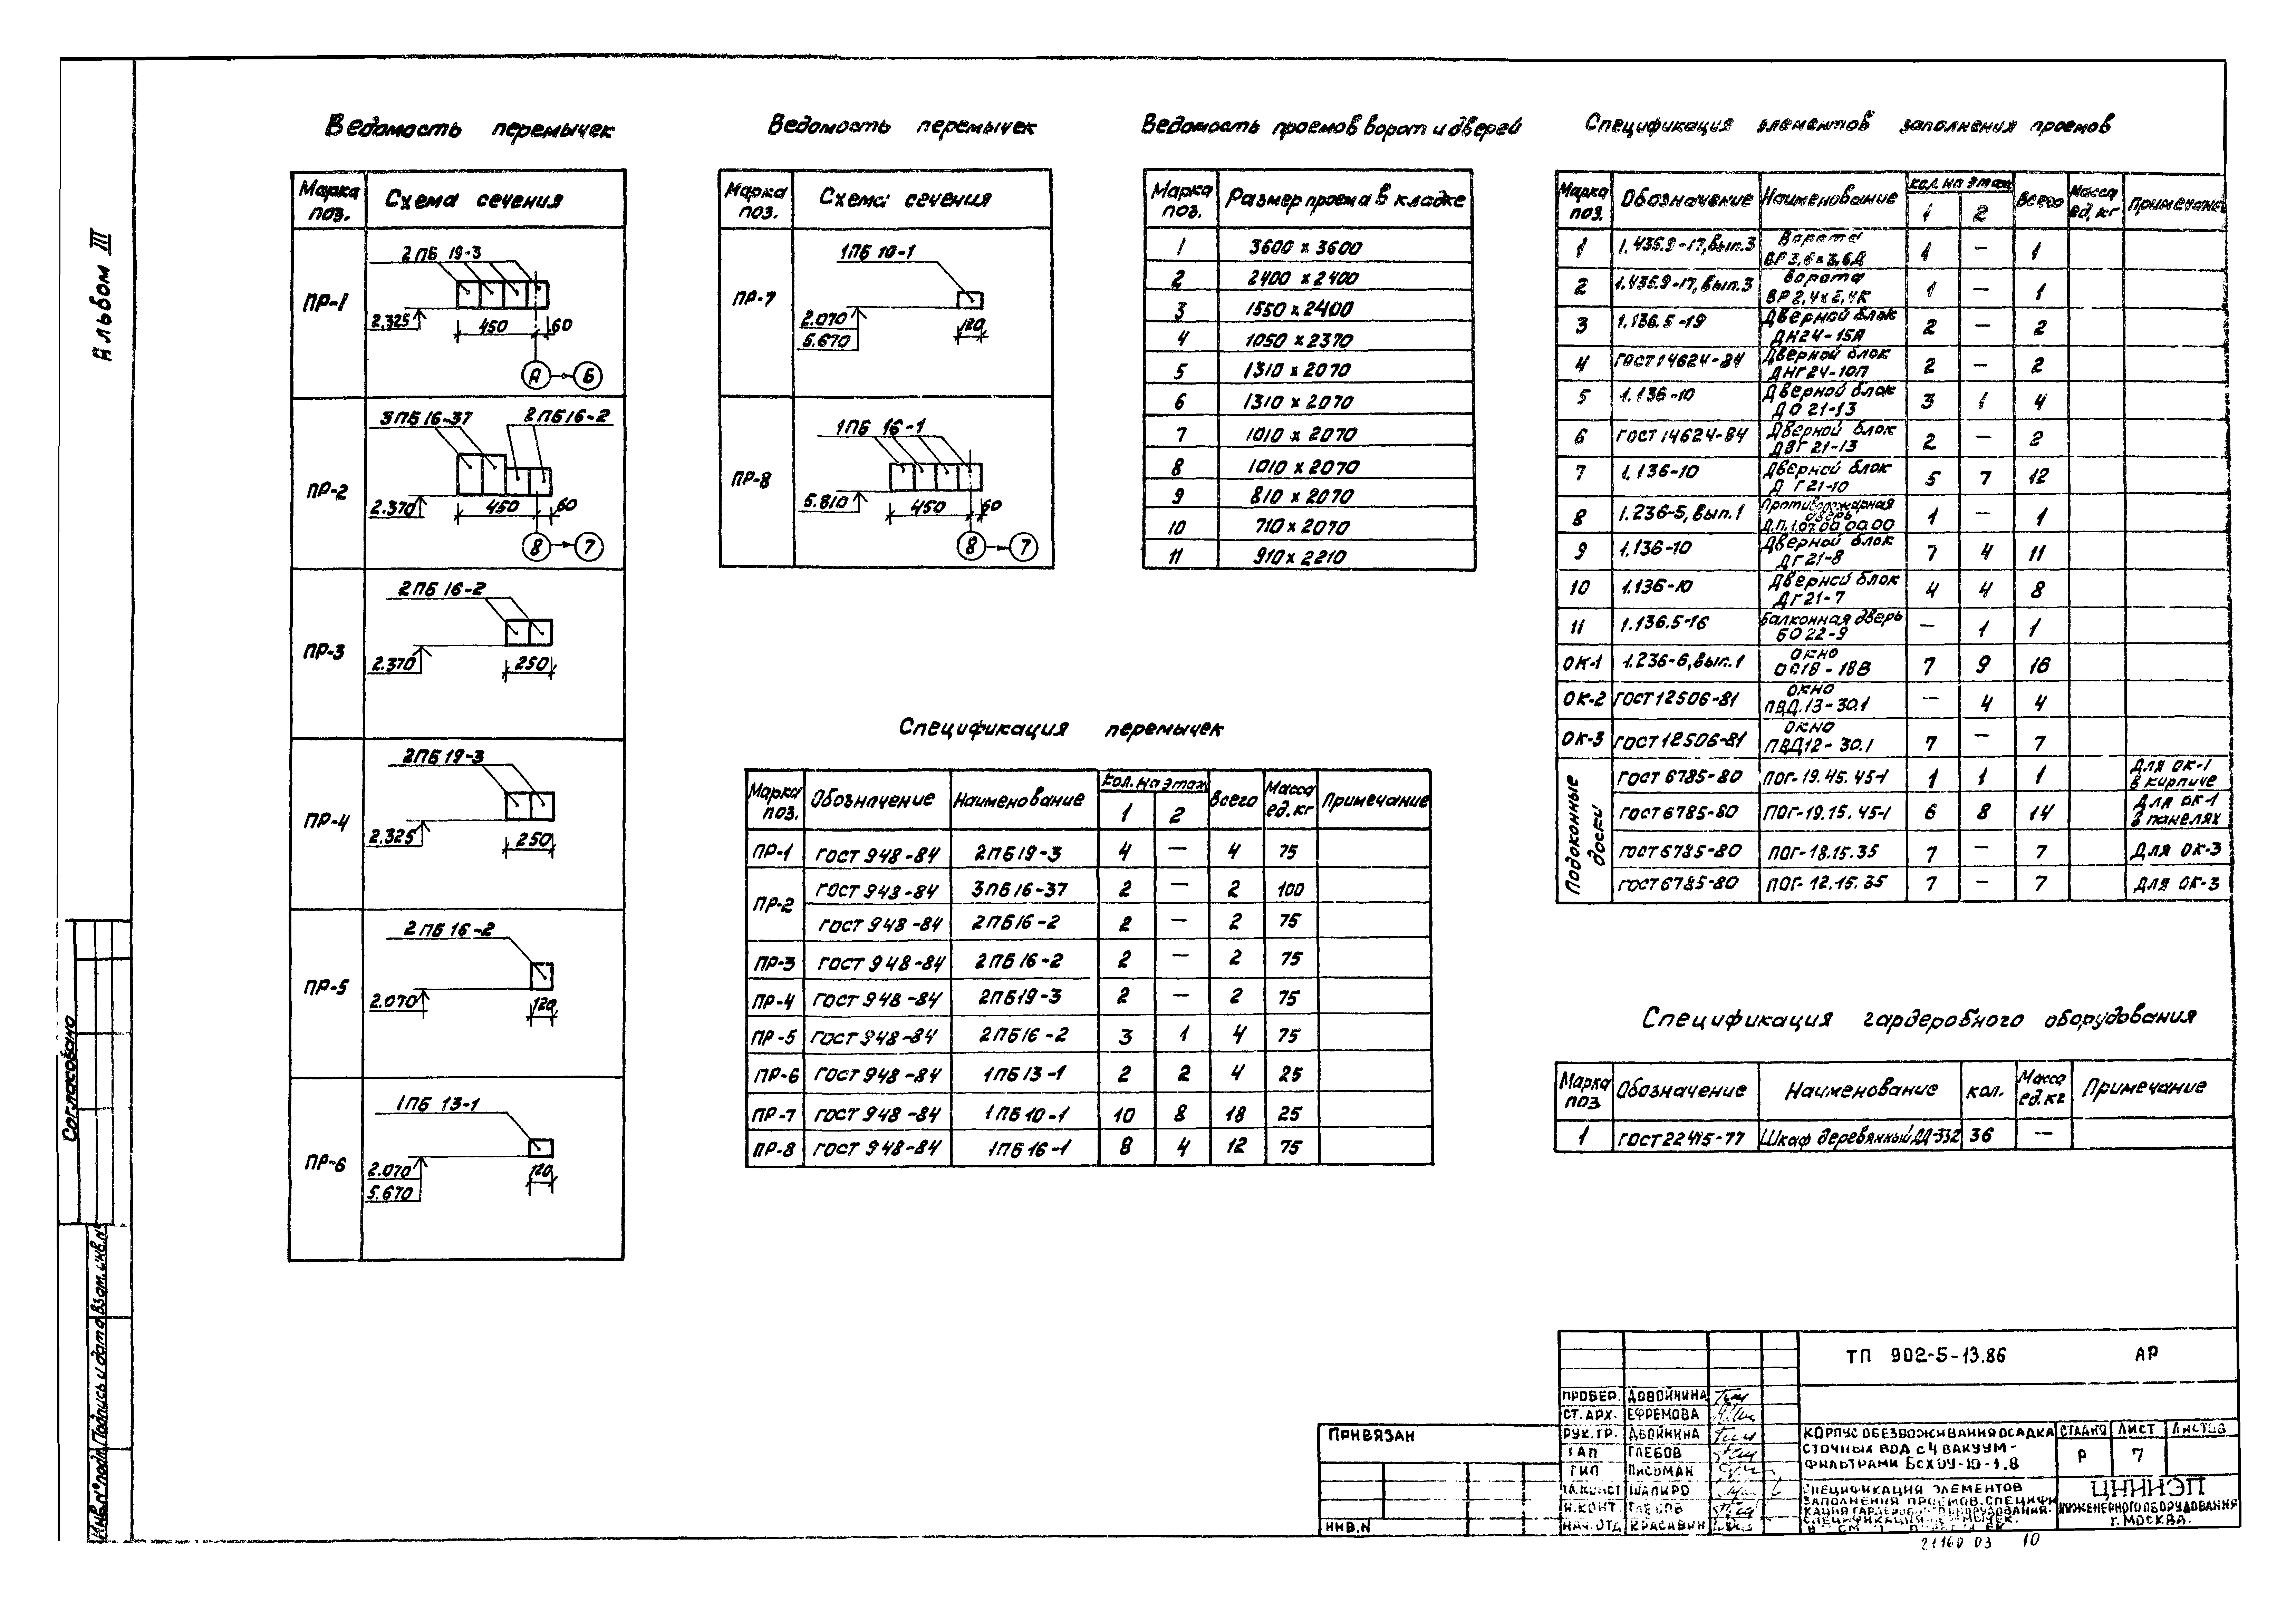 Альбом III
Ведомость перемычек
Марка поз.
Схема сечения
ПР-1
2ПБ 19-3
2.325
450
60
А
Б
ПР-2
3ПБ16-37
2ПБ16-2
2.370
450
60
8
7
ПР-3
2ПБ 16-2
2.370
250
ПР-4
2ПБ 19-3
2.325
250
ПР-5
2ПБ 16-2
2.070
120
ПР-6
1ПБ 13-1
2.070
5.670
120
Ведомость перемычек
Марка поз.
Схема сечения
ПР-7
1ПБ 10-1
2.070
5.670
120
ПР-8
1ПБ 16-1
5.810
450
60
8
7
Ведомость проемов ворот и дверей
Марка поз. Размер проема в кладке
1 3600 х 3600
2 2400 х 2400
3 1550 х 2400
4 1050 х 2370
5 1310 х 2070
6 1310 х 2070
7 1010 х 2070
8 1010 х 2070
9 810 х 2070
10 710 х 2070
11 910 х 2210
Спецификация элементов заполнения проемов
Марка поз. Обозначение Наименование кол. на этаж 1 2 Всего Масса ед, кг Примечание
1 1.435.9-17, вып.3 Ворота ВР 3,6х3,6Д 1 — 1
2 1.435.9-17, вып.3 Ворота ВР 2,4х2,4К 1 — 1
3 1.136.5-19 Дверной блок ДН24-15А 2 — 2
4 ГОСТ 14624-84 Дверной блок ДНГ24-10П 2 — 2
5 1.136-10 Дверной блок ДО 21-13 3 1 4
6 ГОСТ 14624-84 Дверной блок ДВГ 21-13 2 — 2
7 1.136-10 Дверной блок Д Г21-10 5 7 12
8 1.236-5, вып.1 Противопожарная дверь Д.П.1.07.00.00.00 1 — 1
9 1.136-10 Дверной блок ДГ21-8 7 4 11
10 1.136-10 Дверной блок ДГ21-7 4 4 8
11 1.136.5-16 Балконная дверь БО 22-9 — 1 1
ОК-1 1.236-6, вып.1 Окно ОС18-18В 7 9 16
ОК-2 ГОСТ 12506-81 Окно ПВД.13-30.1 — 4 4
ОК-3 ГОСТ 12506-81 Окно ПВД12-30.1 7 — 7
Подоконные доски
ГОСТ 6785-80 ПОГ-19.45.45-1 1 1 1 Для ОК-1 в кирпиче
ГОСТ 6785-80 ПОГ-19.15.45-1 6 8 14 Для ОК-1 в панелях
ГОСТ 6785-80 ПОГ-18.15.35 7 — 7 Для ОК-3
ГОСТ 6785-80 ПОГ-12.15.35 7 — 7 Для ОК-3
Спецификация перемычек
Марка поз. Обозначение Наименование кол. на этаж 1 2 Всего Масса ед. кг Примечание
ПР-1 ГОСТ 948-84 2ПБ19-3 4 — 4 75
ПР-2 ГОСТ 948-84 3ПБ16-37 2 — 2 100
ГОСТ 948-84 2ПБ16-2 2 — 2 75
ПР-3 ГОСТ 948-84 2ПБ16-2 2 — 2 75
ПР-4 ГОСТ 948-84 2ПБ19-3 2 — 2 75
ПР-5 ГОСТ 948-84 2ПБ16-2 3 1 4 75
ПР-6 ГОСТ 948-84 1ПБ13-1 2 2 4 25
ПР-7 ГОСТ 948-84 1ПБ10-1 10 8 18 25
ПР-8 ГОСТ 948-84 1ПБ16-1 8 4 12 75
Спецификация гардеробного оборудования
Марка поз Обозначение Наименование кол. Масса ед. кг Примечание
1 ГОСТ 22415-77 Шкаф деревянный ДД-332 36 —
Согласовано
Инв.№ подл. Подпись и дата Взам. инв.№
ПРИВЯЗАН
ИНВ.N
ТП 902-5-13.86 АР
ПРОВЕР. ДВОЙНИНА
СТ. АРХ. ЕФРЕМОВА
РУК. ГР. ДВОЙНИНА
ГАП ГЛЕБОВ
ГИП ПИСЬМАН
ГЛ.КОНСТ ШАПИРО
Н.КОНТ. ГЛЕБОВ
НАЧ. ОТД КРАСАВИН
КОРПУС ОБЕЗВОЖИВАНИЯ ОСАДКА
СТОЧНЫХ ВОД С 4 ВАКУУМ-
ФИЛЬТРАМИ БсхОУ-10-1,8
СТАДИЯ ЛИСТ ЛИСТОВ
Р 7
СПЕЦИФИКАЦИЯ ЭЛЕМЕНТОВ
ЗАПОЛНЕНИЯ ПРОЕМОВ. СПЕЦИФИ
КАЦИЯ ГАРДЕРОБНОГО ОБОРУДОВАНИЯ.
СПЕЦИФИКАЦИЯ ПЕРЕМЫЧЕК.
ЦНИИЭП
ИНЖЕНЕРНОГО ОБОРУДОВАНИЯ
Г. МОСКВА.
21160-03 10